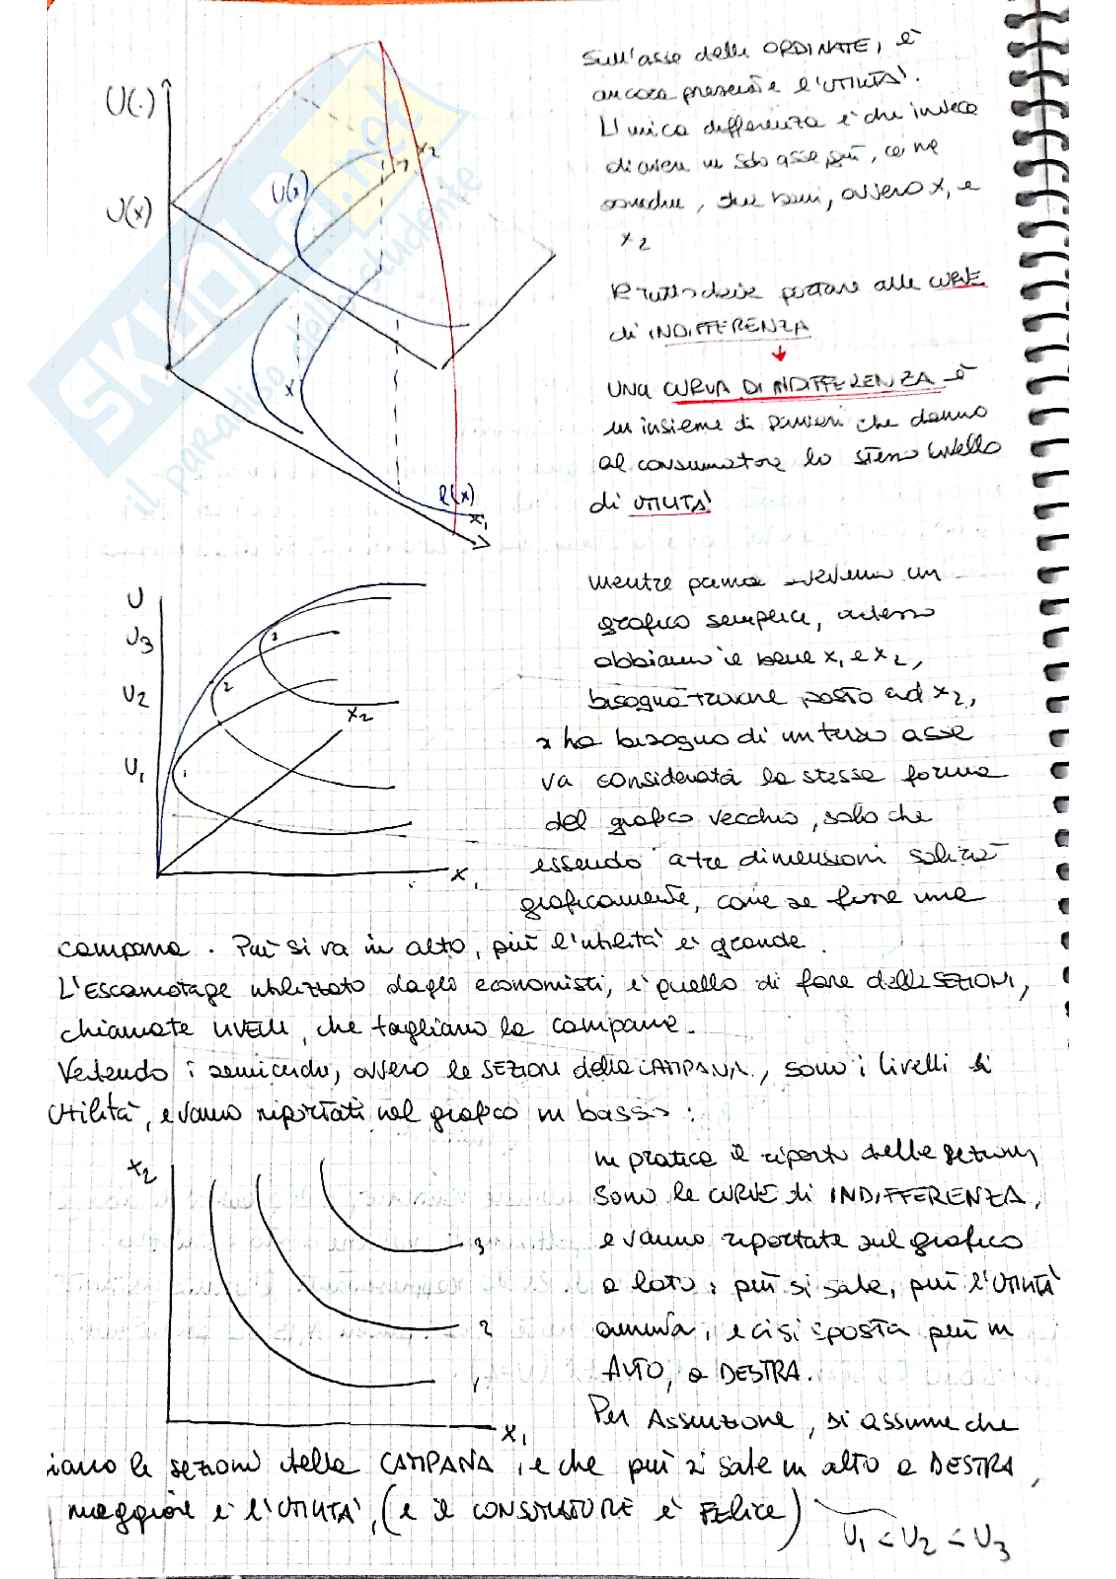 U(·)
U(x)
U(x)
x2
x
l(x)
x1
SKUOLA.net
il paradiso dello studente
Sull'asse delle ORDINATE, è
ancora presente l'UTILITÀ.
L'unica differenza è che invece
di avere un solo asse più, ce ne
sono due, due beni, ovvero x1 e
x2
Il tutto deve portare alle CURVE
di INDIFFERENZA
↓
UNA CURVA DI INDIFFERENZA è
un insieme di Panieri che danno
al consumatore lo stesso livello
di UTILITÀ
U
U3
U2
U1
3
2
1
x2
x1
mentre prima avevamo un
grafico semplice, adesso
abbiamo il bene x1 e x2,
bisogna trovare posto ad x2,
si ha bisogno di un terzo asse
va considerata la stessa forma
del grafico vecchio, solo che
essendo a tre dimensioni salirà
graficamente, come se fosse una
campana. Più si va in alto, più l'utilità è grande.
L'Escamotage utilizzato dagli economisti, è quello di fare delle SEZIONI,
chiamate LIVELLI, che tagliano la campana.
Vedendo i semicerchi, ovvero le SEZIONI della CAMPANA, sono i livelli di
Utilità, e vanno riportati nel grafico in basso:
x2
3
2
1
x1
in pratica il riporto delle sezioni
sono le CURVE di INDIFFERENZA,
e vanno riportate sul grafico
a lato: più si sale, più l'UTILITÀ
aumenta, e ci si sposta più in
ALTO, a DESTRA.
Per Assunzione, si assume che
siano le sezioni della CAMPANA, e che più si sale in alto a DESTRA,
maggiore è l'UTILITÀ, (e il CONSUMATORE è FELICE)
U1 < U2 < U3